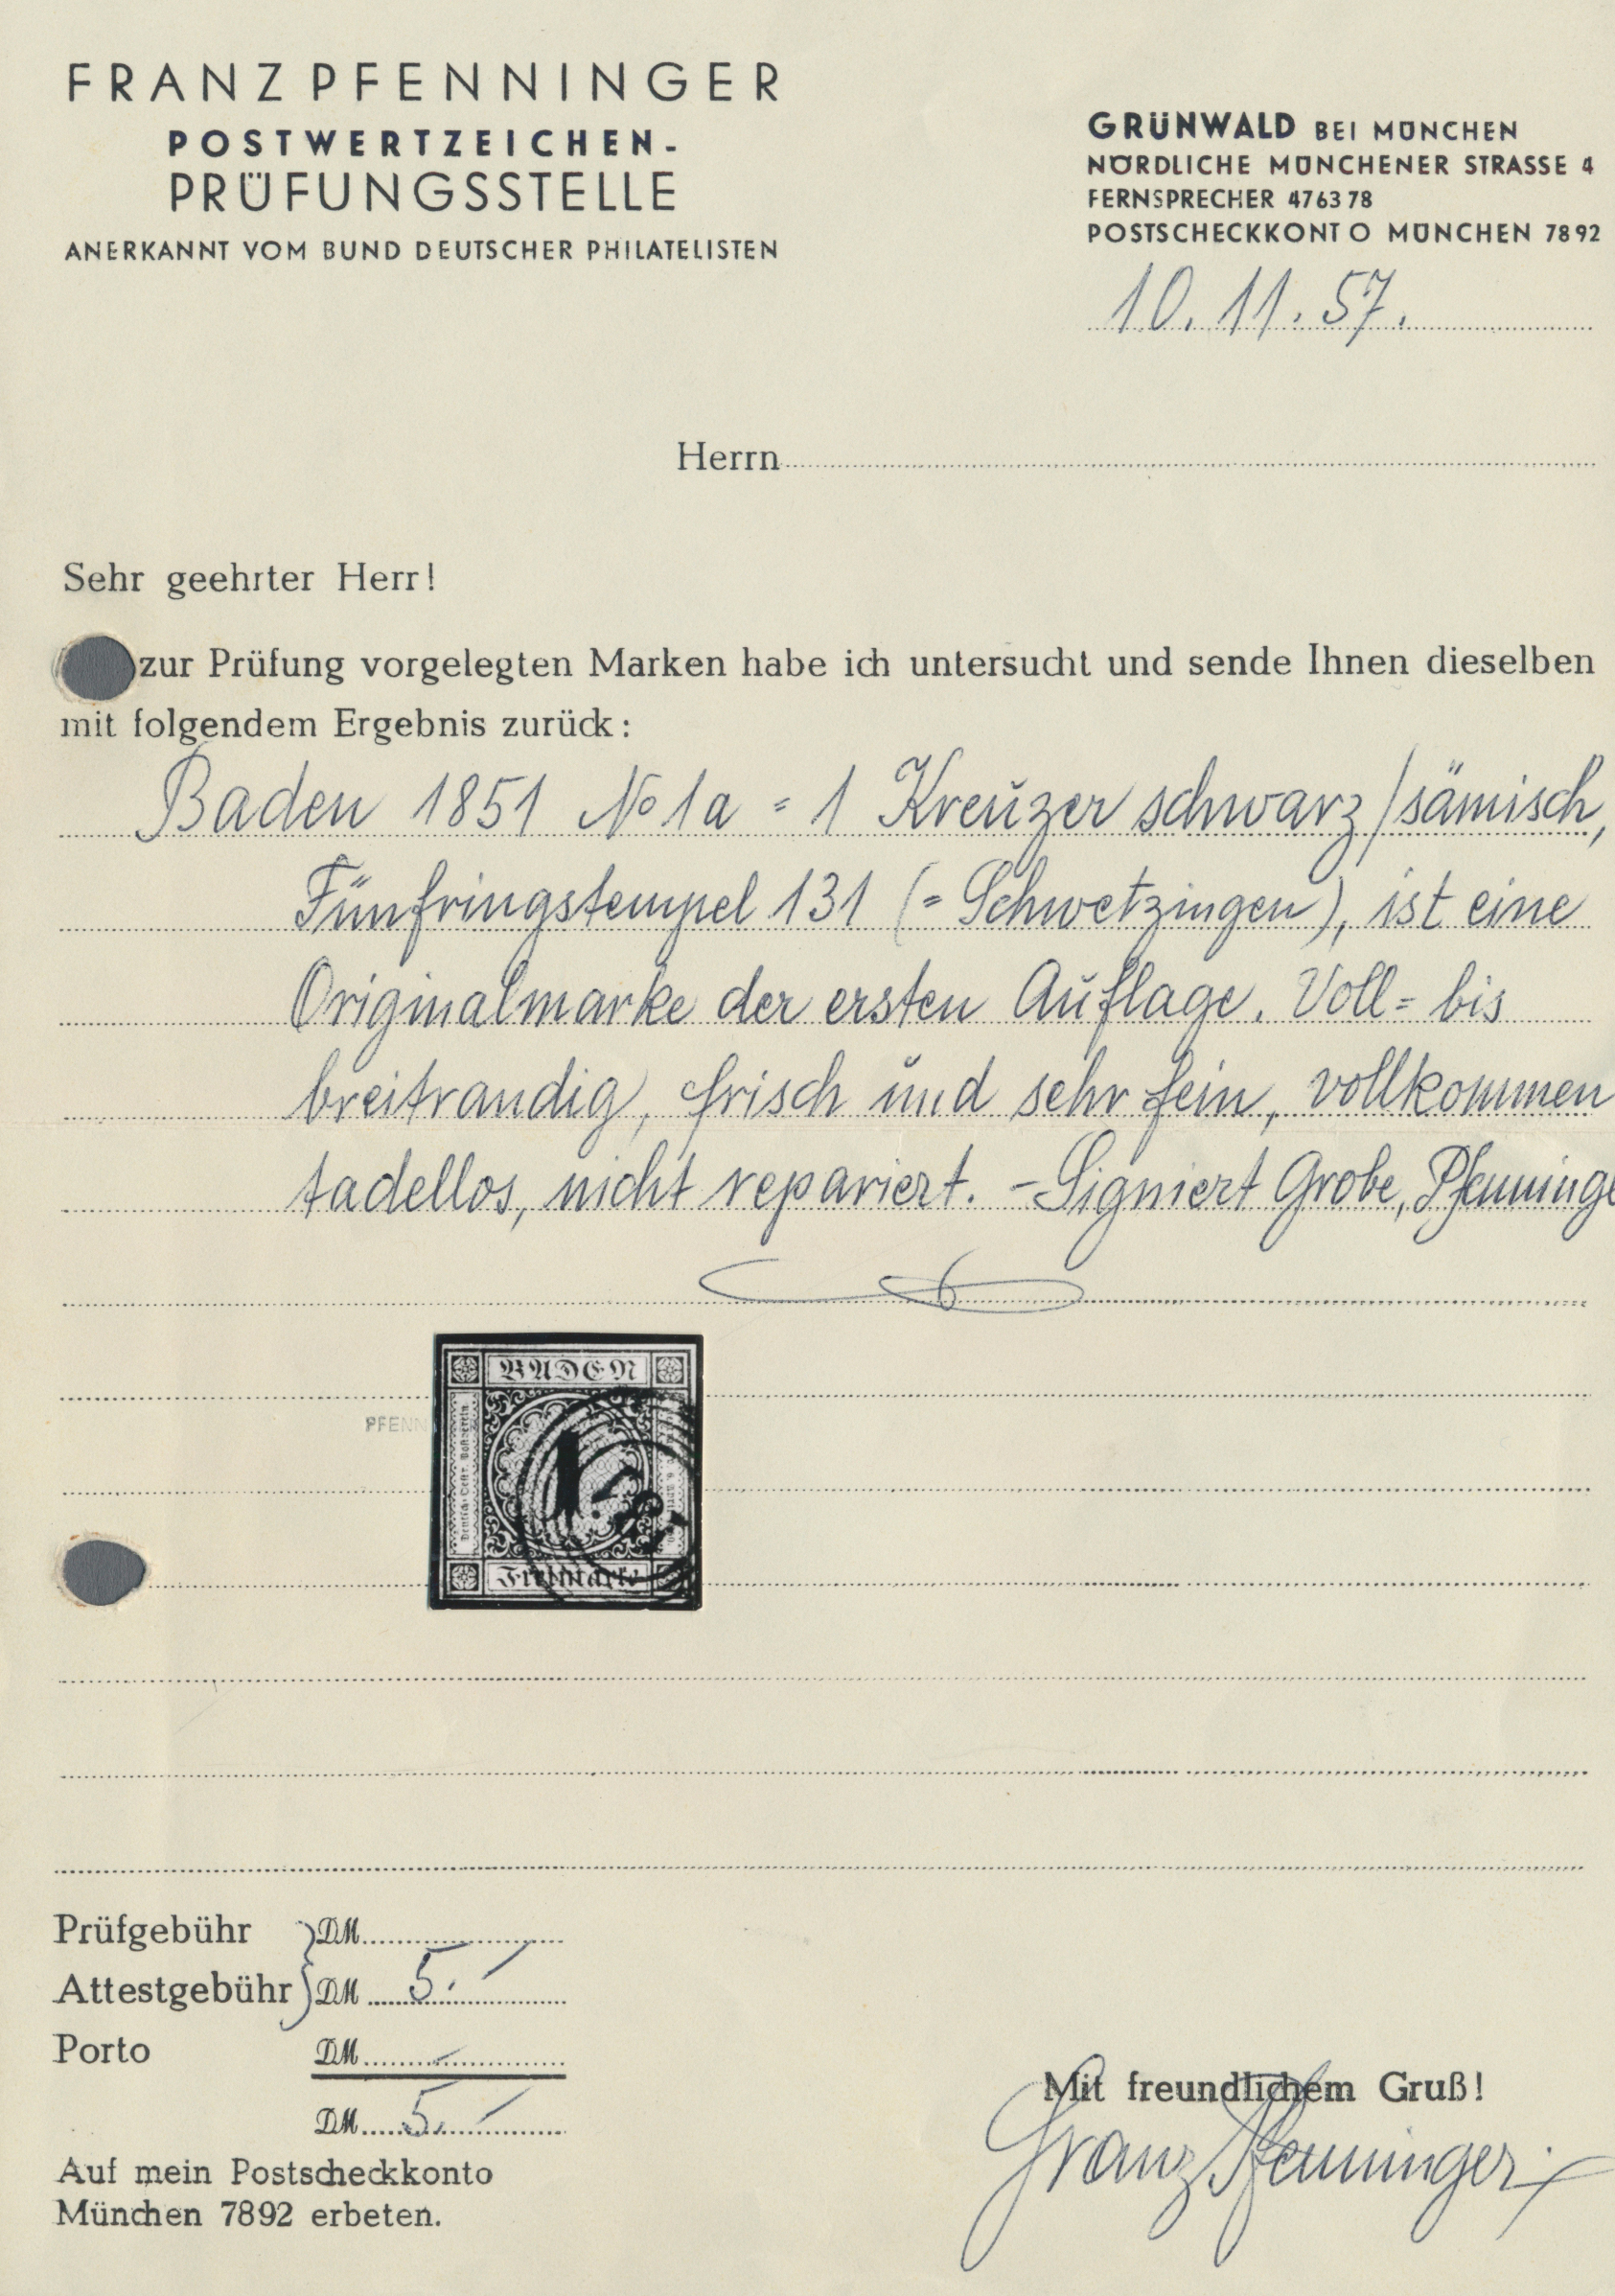 FRANZ PFENNINGER
POSTWERTZEICHEN-
PRÜFUNGSSTELLE
ANERKANNT VOM BUND DEUTSCHER PHILATELISTEN
GRÜNWALD BEI MÜNCHEN
NÖRDLICHE MÜNCHENER STRASSE 4
FERNSPRECHER 476378
POSTSCHECKKONTO MÜNCHEN 7892
10.11.57.
Herrn
Sehr geehrter Herr!
zur Prüfung vorgelegten Marken habe ich untersucht und sende Ihnen dieselben
mit folgendem Ergebnis zurück:
Baden 1851 No 1a = 1 Kreuzer schwarz/sämisch,
Fünfringstempel 131 (= Schwetzingen), ist eine
Originalmarke der ersten Auflage. Voll= bis
breitrandig, frisch und sehr fein, vollkommen
tadellos, nicht repariert. – Signiert Grobe, Pfenninge
BADEN
PFENN
1
Freimarke
Prüfgebühr DM
Attestgebühr DM 5.-
Porto DM -
DM 5.-
Auf mein Postscheckkonto
München 7892 erbeten.
Mit freundlichem Gruß!
Franz Pfenninger